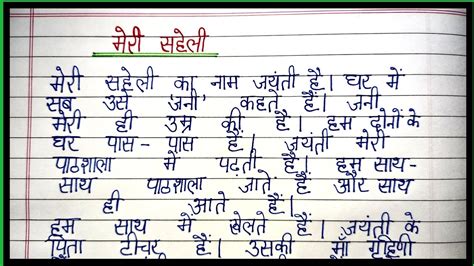 मेरी सहेली
मेरी सहेली का नाम जयंती है। घर में
सब उसे 'जनी' कहते हैं। जनी
मेरी ही उम्र की है। हम दोनों के
घर पास-पास हैं। जयंती मेरी
पाठशाला में पढ़ती है। हम साथ-
साथ पाठशाला जाते हैं और साथ
ही आते हैं।
हम साथ में खेलते हैं। जयंती के
पिता टीचर हैं। उसकी माँ गृहिणी